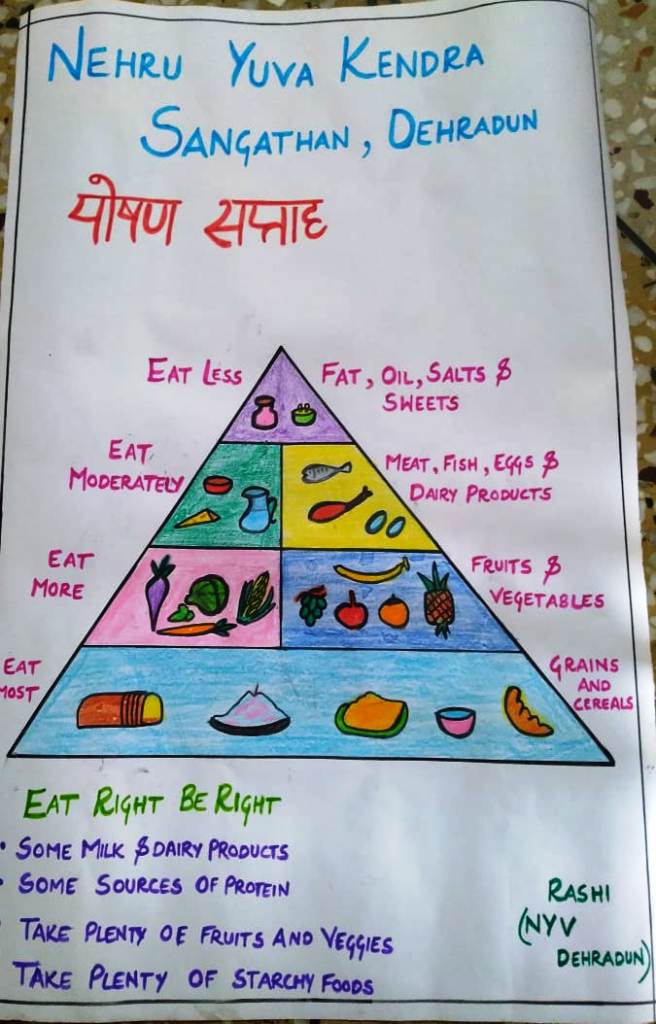 NEHRU YUVA KENDRA
SANGATHAN, DEHRADUN
पोषण सप्ताह
EAT LESS
FAT, OIL, SALTS &
SWEETS
EAT
MODERATELY
MEAT, FISH, EGGS &
DAIRY PRODUCTS
EAT
MORE
FRUITS &
VEGETABLES
EAT
MOST
GRAINS
AND
CEREALS
EAT RIGHT BE RIGHT
• SOME MILK & DAIRY PRODUCTS
• SOME SOURCES OF PROTEIN
• TAKE PLENTY OF FRUITS AND VEGGIES
TAKE PLENTY OF STARCHY FOODS
RASHI
(NYV
DEHRADUN)